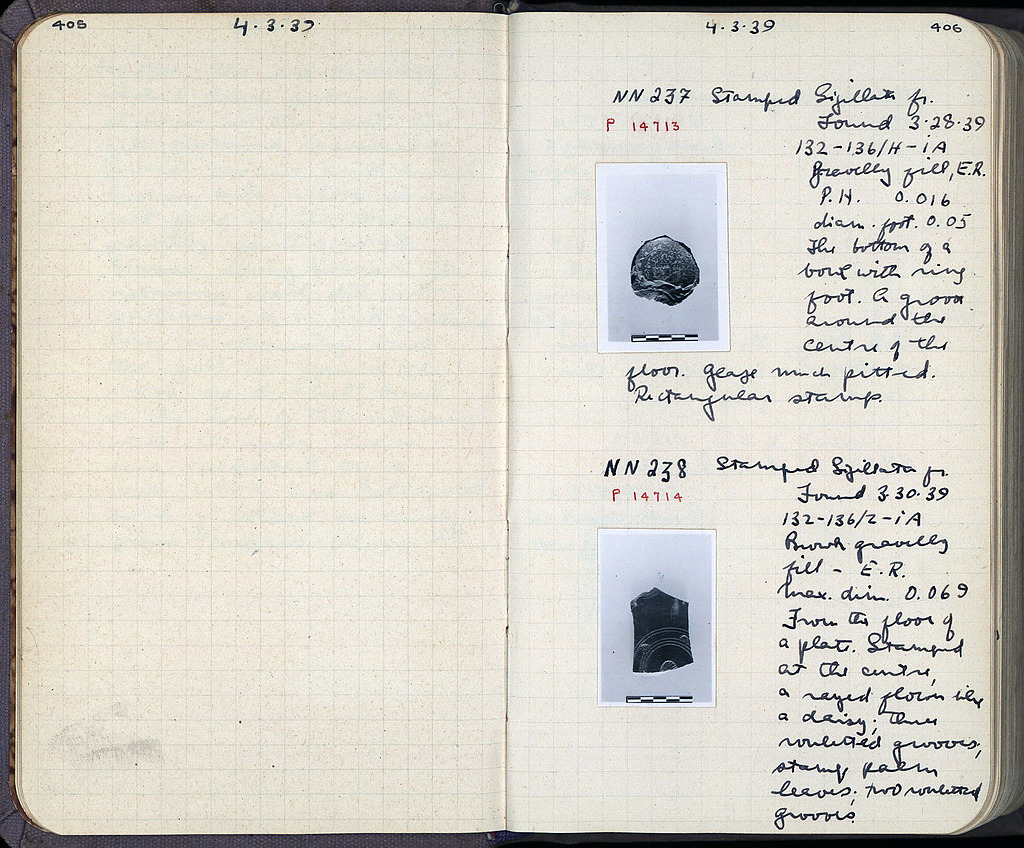 405
4·3·39
4·3·39
406
NN 237 Stamped Sigillata fr.
P 14713
Found 3·28·39
132-136/H-iA
Gravelly fill, E.R.
P.H. 0.016
diam. foot. 0.05
The bottom of a
bowl with ring
foot. A groove
around the
centre of the
floor. Glaze much pitted.
Rectangular stamp.
NN 238 Stamped Sigillata fr.
P 14714
Found 3·30·39
132-136/Z-iA
Brown gravelly
fill - E.R.
Max. dim. 0.069
From the floor of
a plate. Stamped
at the centre,
a rayed flower like
a daisy; three
rouletted grooves,
stamp palm
leaves; two rouletted
grooves